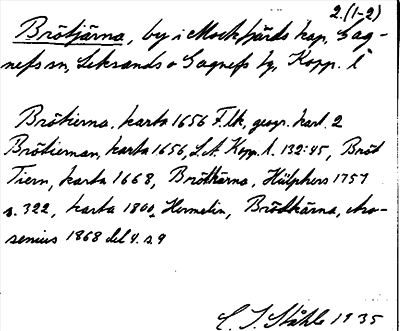 2.(1-2)
Brötjärna, by i Mockfjärds kap, Gag-
nefs sn, Leksands o Gagnefs tg, Kopp. l
Brötierna, karta 1656 F.tk, geogr. kart. 2
Brötiernan, karta 1656, L.A. Kopp. l. 132:45, Bröt
Tiern, karta 1668, Brötkärna, Hülphers 1757
s. 322, karta 1800, Hermelin, Brötkärna, Aro-
senius 1868 del 4. s. 9
C. I. Ståhle 1935